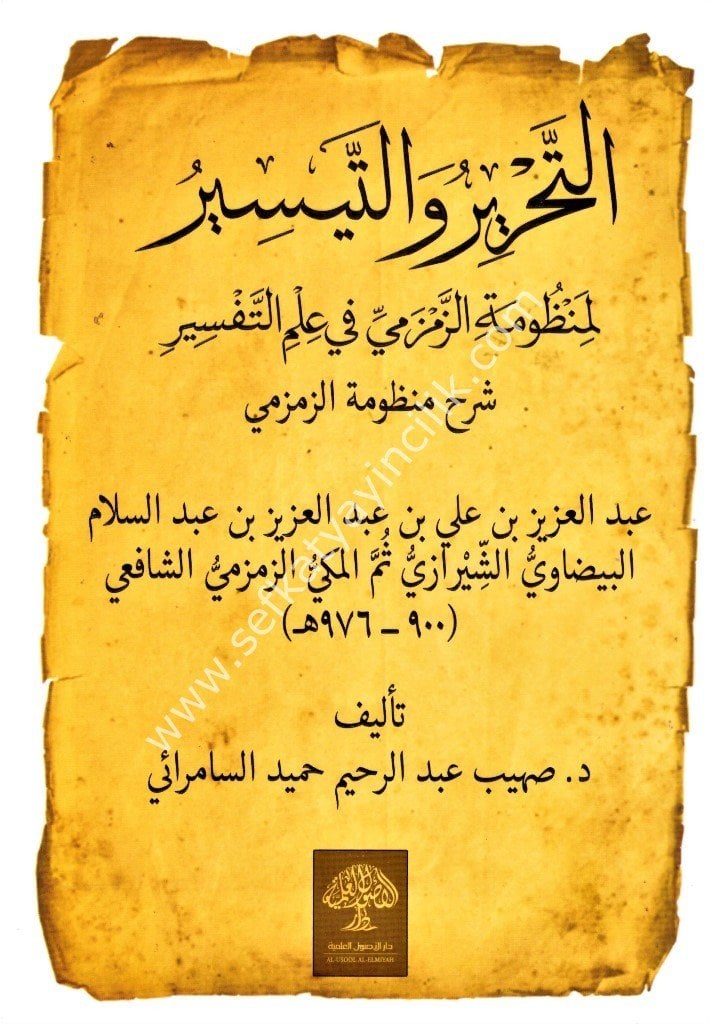 التَّحْرِيرُ وَالتَّيْسِيرُ
لِمَنْظُومَةِ الزَّمْزَمِيِّ فِي عِلْمِ التَّفْسِيرِ
شرح منظومة الزمزمي
عبد العزيز بن علي بن عبد العزيز بن عبد السلام
البيضاويُّ الشِّيْرازيُّ ثُمَّ المكيُّ الزمزميُّ الشافعي
(٩٠٠ – ٩٧٦هـ)
تأليف
د. صهيب عبد الرحيم حميد السامرائي
دار الأصول العلمية
دار الأصول العلمية
AL-USOOL AL-ELMIYAH
www.sefkatyayincilik.com